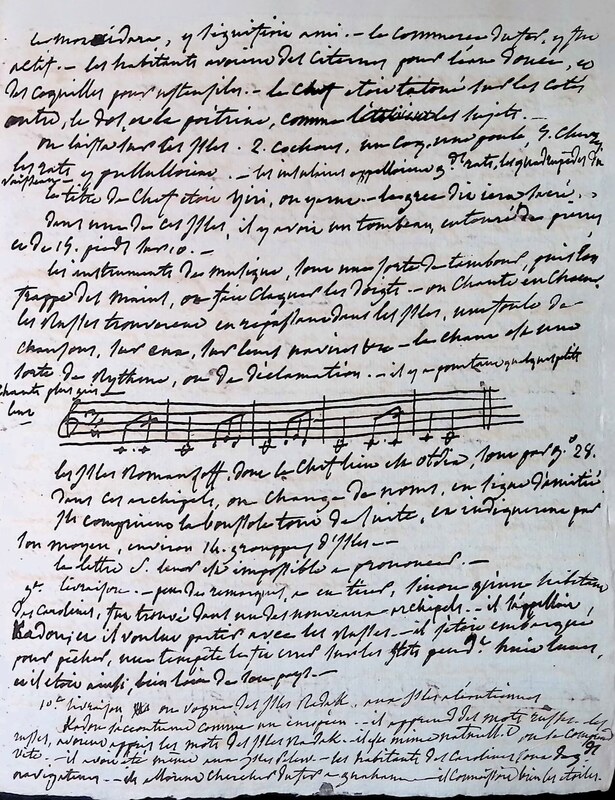 le mot aidara, y signifioit ami. - le commerce du fer, y fut
actif. - les habitants avoient des citernes pour l'eau douce, et
des coquilles pour ustensiles. - le chef etoit tatoué sur les cotés
outre, le dos et la poitrine, comme les sujets. -
on laissa sur les isles. 2. cochons, un coq, une poule, chevres
les rats y pullulloient. - les insulaires appelloient gds rats, les quadrupedes du
vaisseau -
le titre de chef etoit - le grec sacré.
dans une de ces isles, il y avoit un tombeau, entouré de pierres,
et de 15. pieds sur 10. -
les instruments de musique, sont une sorte de tambour, puis l'on
frappe des mains, on fait claquer les doigts. - on chante en choeur
les russes trouverent en repassant dans les isles, une foule de
chansons, sur eux, sur leurs navires &c - le chant est une
sorte de rythme, ou de déclamation. - il y a pourtant quelques petits
chants plus
les isles Romanzoff, dont le chef lieu est otdia, sont par 9.° 28.
dans ces archipels, on change de noms, en signe d'amitié
ils comprirent la boussole tout de suite, et indiquerent par
son moyen, environ 14. grouppes d'isles -
la lettre S. leur est impossible a prononcer. -
9e. livraison. - peu de remarques, a en tirer, sinon qu'un habitant
des Carolines, fut trouvé dans un des nouveaux archipels. - il s'appelloit,
Kadou, et il voulut partir avec les russes. - il s'étoit embarqué
pour pêcher, une tempête le fit errer sur les flots pendt huit lunes,
et il etoit ainsi, bien loin de son pays. -
10e livraison on vogue des isles Radak. aux isles aleoutiennes
Kadou s'accoutume comme un européen - il apprend des mots russes. les
russes, avoient appris les mots des isles Radak. - on le comprend
vite. - il avoit été même aux isles Pelew. - les habitants des Carolines sont des
navigateurs. - ils allerent chercher du fer a guaham - il connoissoit bien les etoiles.